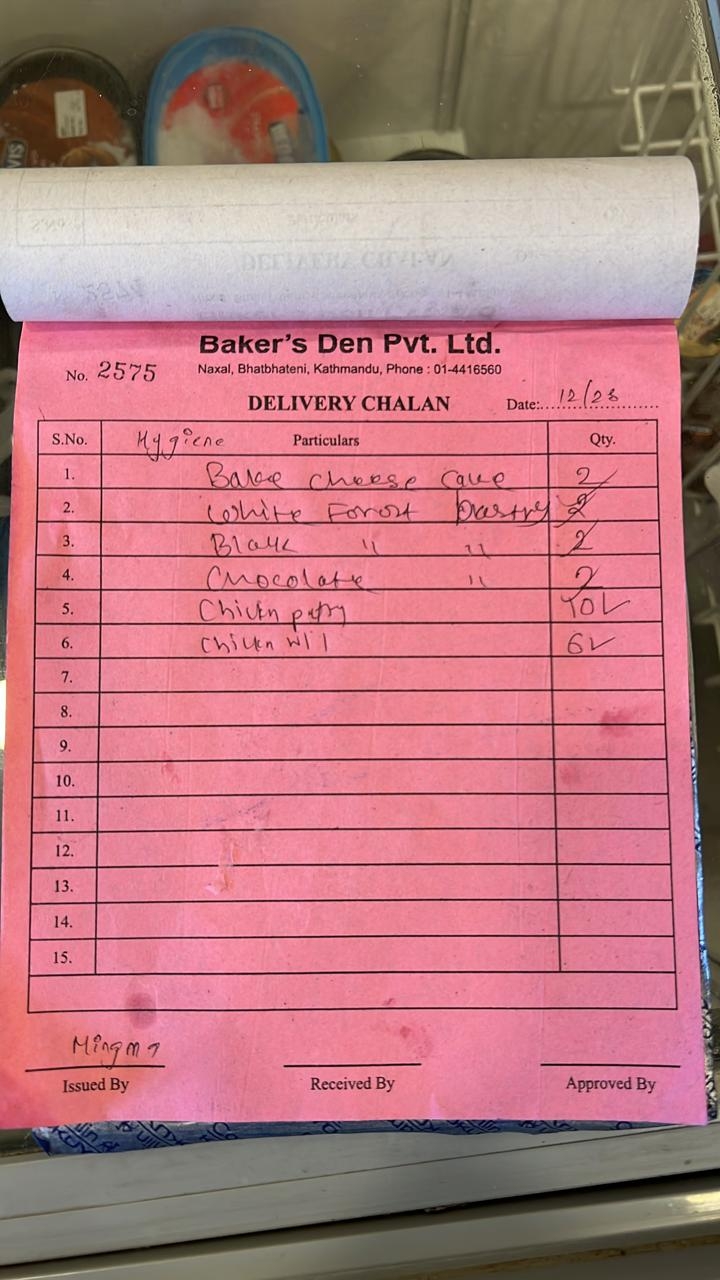 Baker's Den Pvt. Ltd.
No. 2575
Naxal, Bhatbhateni, Kathmandu, Phone : 01-4416560
DELIVERY CHALAN
Date:....12/28
S.No. Hygiene Particulars Qty.
1. Bake cheese cake 2
2. White Forest pastry 2
3. Black " " 2
4. Chocolate " 2
5. Chicken patty 10
6. Chicken 6
7.
8.
9.
10.
11.
12.
13.
14.
15.
Mingma
Issued By Received By Approved By